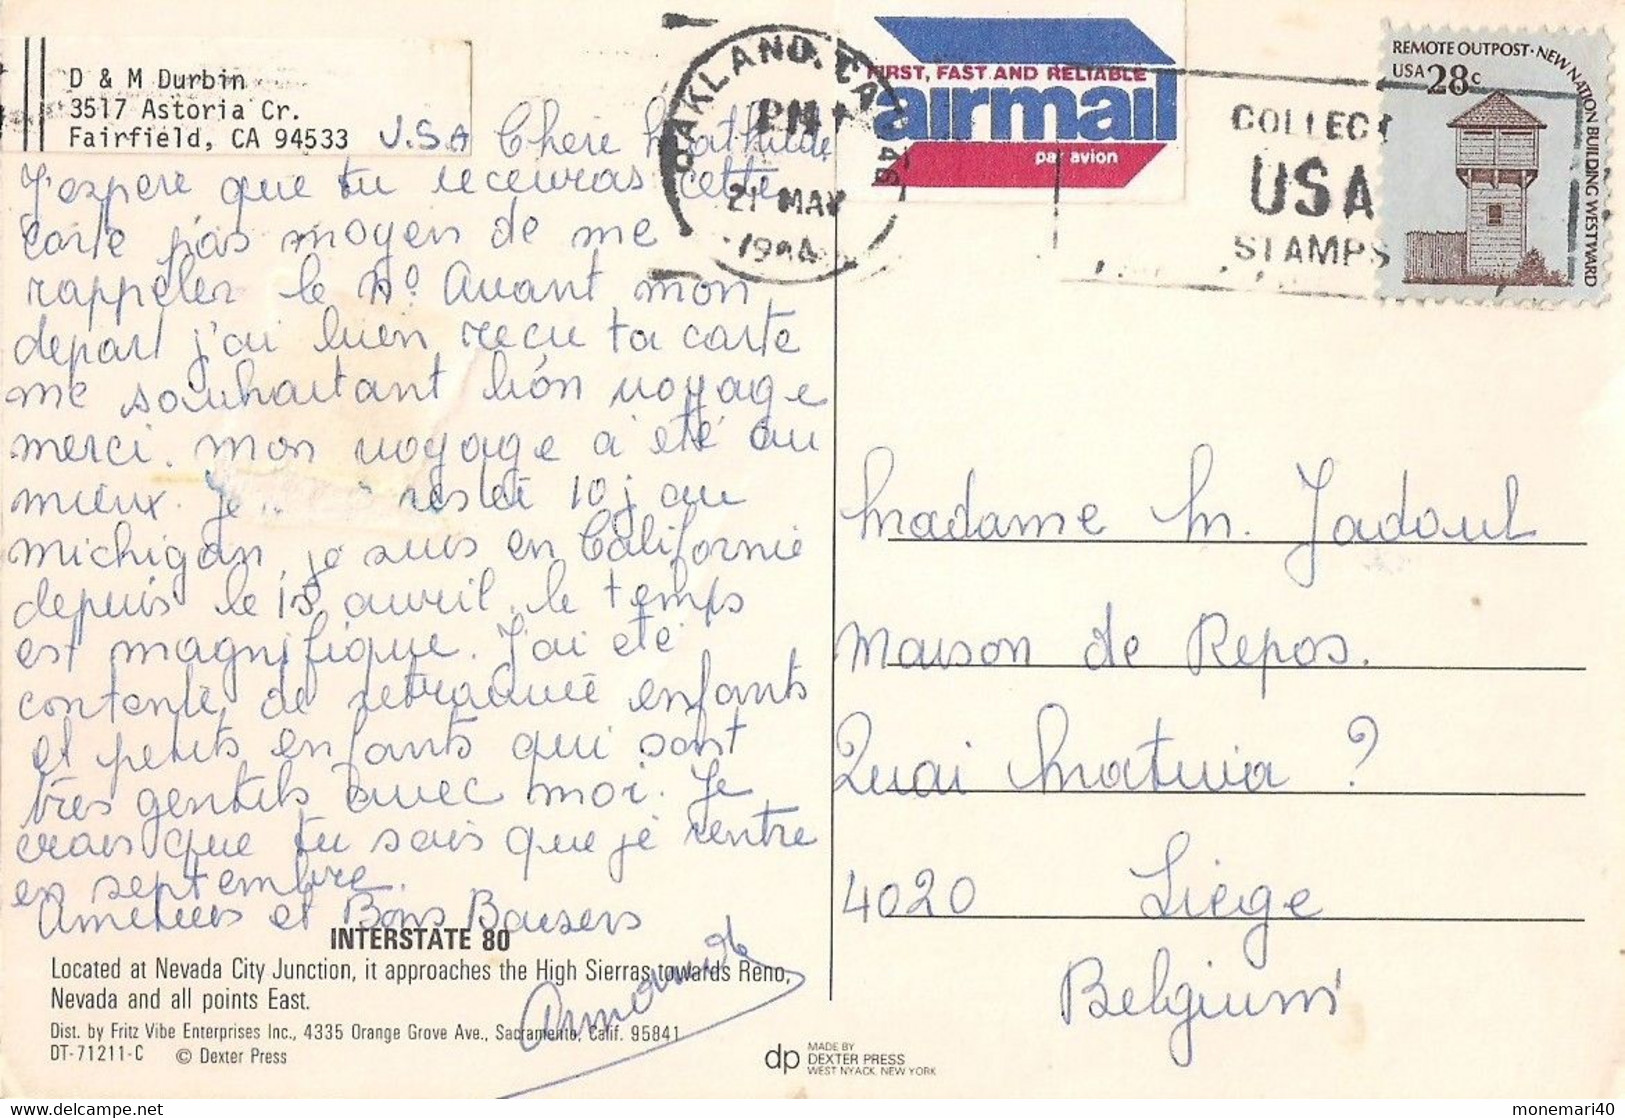 D & M Durbin
3517 Astoria Cr.
Fairfield, CA 94533
U.S.A Chère Mathilde
J'espère que tu recevras cette
carte pas moyen de me
rappeler le N° Avant mon
depart j'ai bien reçu ta carte
me souhaitant bon voyage
merci. mon voyage a été au
mieux. Je restée 10 j au
michigan, je suis en Californie
depuis le 15 avril. le temps
est magnifique. J'ai été
contente de retrouvé enfants
et petits enfants qui sont
très gentils avec moi. Je
crois que tu sais que je rentre
en septembre.
Amitiés et Bons Baisers
INTERSTATE 80
Located at Nevada City Junction, it approaches the High Sierras towards Reno,
Nevada and all points East.
Dist. by Fritz Vibe Enterprises Inc., 4335 Orange Grove Ave., Sacramento, Calif. 95841
DT-71211-C © Dexter Press
dp
MADE BY
DEXTER PRESS
WEST NYACK, NEW YORK
OAKLAND, CA
PM
21 MAY
FIRST, FAST AND RELIABLE
airmail
par avion
COLLECT
USA
STAMPS
REMOTE OUTPOST · NEW NATION BUILDING WESTWARD
USA 28c
Madame M. Jadoul
Maison de Repos.
Quai Mativa ?
4020 Liège
Belgium
monemari40